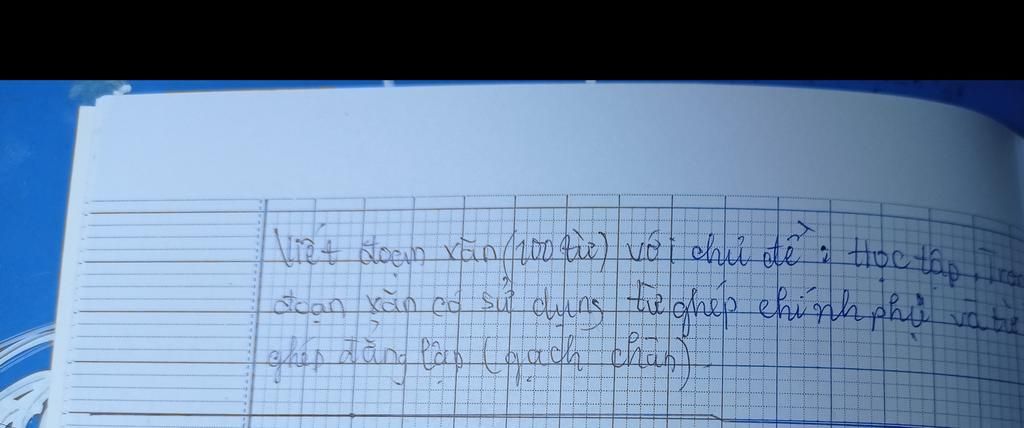 Viết đoạn văn (100 từ) với chủ đề : Học tập. Trong
đoạn văn có sử dụng từ ghép chính phụ và từ
ghép đẳng lập (gạch chân)